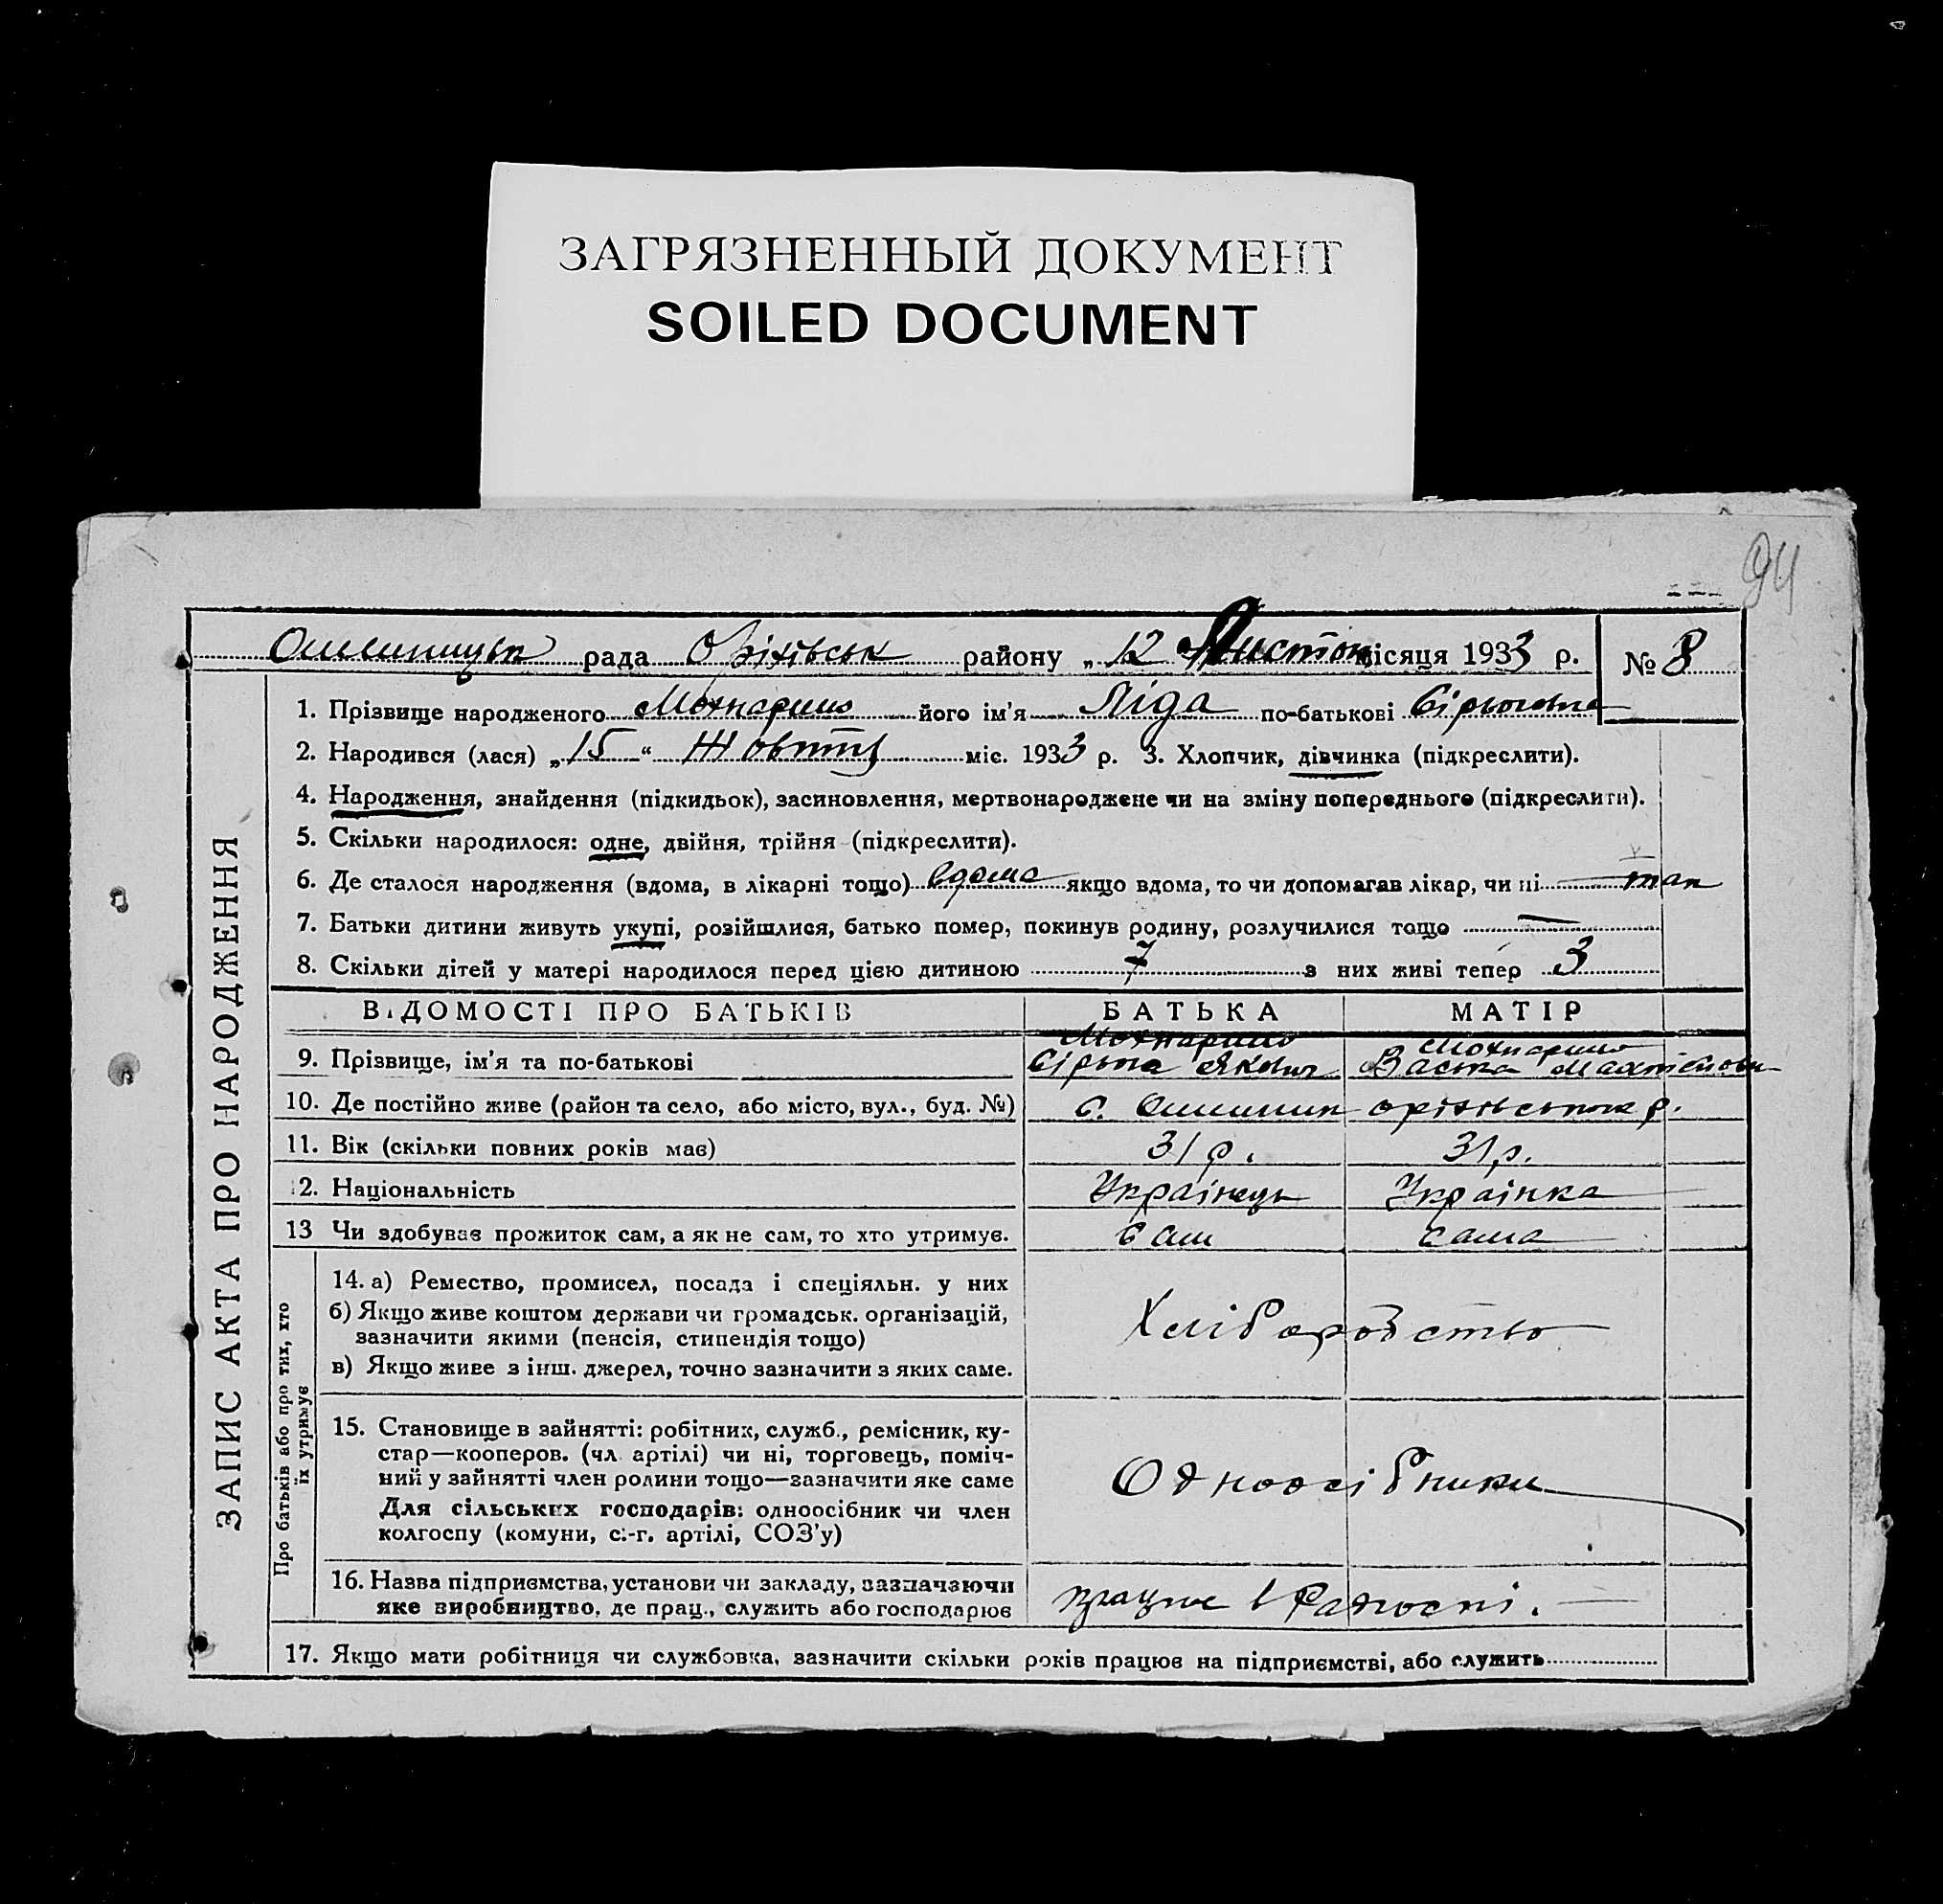 ЗАГРЯЗНЕННЫЙ ДОКУМЕНТ
SOILED DOCUMENT
94
рада Оріхівськ району „ 12 Листоп місяця 1933 р. № 8
ЗАПИС АКТА ПРО НАРОДЖЕННЯ
1. Прізвище народженого його ім'я Ліда по-батькові
2. Народився (лася) „ 15 “ Жовтня міс. 1933 р. 3. Хлопчик, дівчинка (підкреслити).
4. Народження, знайдення (підкидьок), засиновлення, мертвонароджене чи на зміну попереднього (підкреслити).
5. Скільки народилося: одне, двійня, трійня (підкреслити).
6. Де сталося народження (вдома, в лікарні тощо) вдома якщо вдома, то чи допомагав лікар, чи ні так
7. Батьки дитини живуть укупі, розійшлися, батько помер, покинув родину, розлучилися тощо
8. Скільки дітей у матері народилося перед цією дитиною 7 з них живі тепер 3
ВІДОМОСТІ ПРО БАТЬКІВ БАТЬКА МАТІР
9. Прізвище, ім'я та по-батькові Якович
10. Де постійно живе (район та село, або місто, вул., буд. №) с.
11. Вік (скільки повних років має) 31 р. 31 р.
12. Національність Українець Українка
13 Чи здобуває прожиток сам, а як не сам, то хто утримує. сам сама
Про батьків або про тих, хто
їх утримує
14. а) Ремество, промисел, посада і спеціяльн. у них
б) Якщо живе коштом держави чи громадськ. організацій,
зазначити якими (пенсія, стипендія тощо)
в) Якщо живе з інш. джерел, точно зазначити з яких саме.
Хліборобство
15. Становище в зайнятті: робітник, служб., ремісник, ку-
стар—кооперов. (чл. артілі) чи ні, торговець, поміч-
ний у зайнятті член родини тощо—зазначити яке саме
Для сільських господарів: одноосібник чи член
колгоспу (комуни, с.-г. артілі, СОЗ'у)
Одноосібники
16. Назва підприємства, установи чи закладу, зазначаючи
яке виробництво, де прац., служить або господарює
працює в
17. Якщо мати робітниця чи службовка, зазначити скільки років працює на підприємстві, або служить